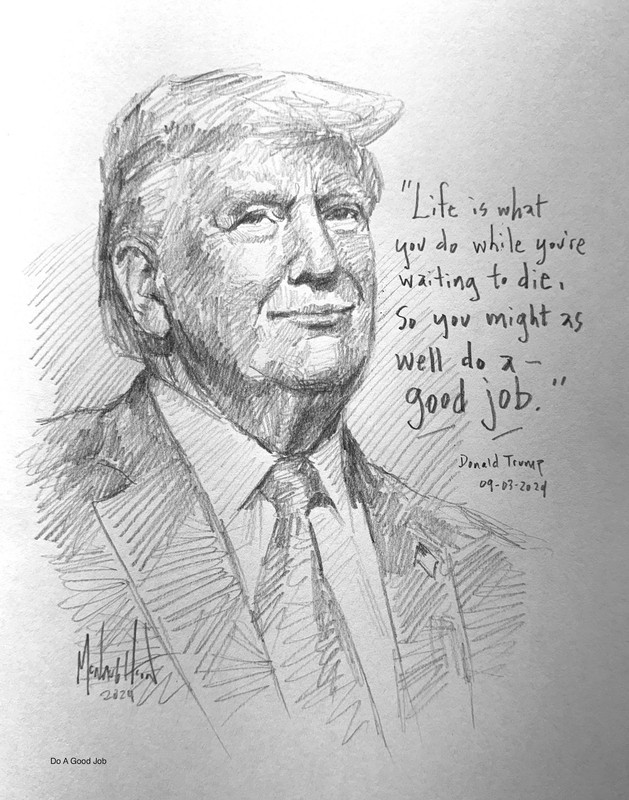 "Life is what
you do while you're
waiting to die.
So you might as
well do a –
good job."
Donald Trump
09-03-2024
2024
Do A Good Job